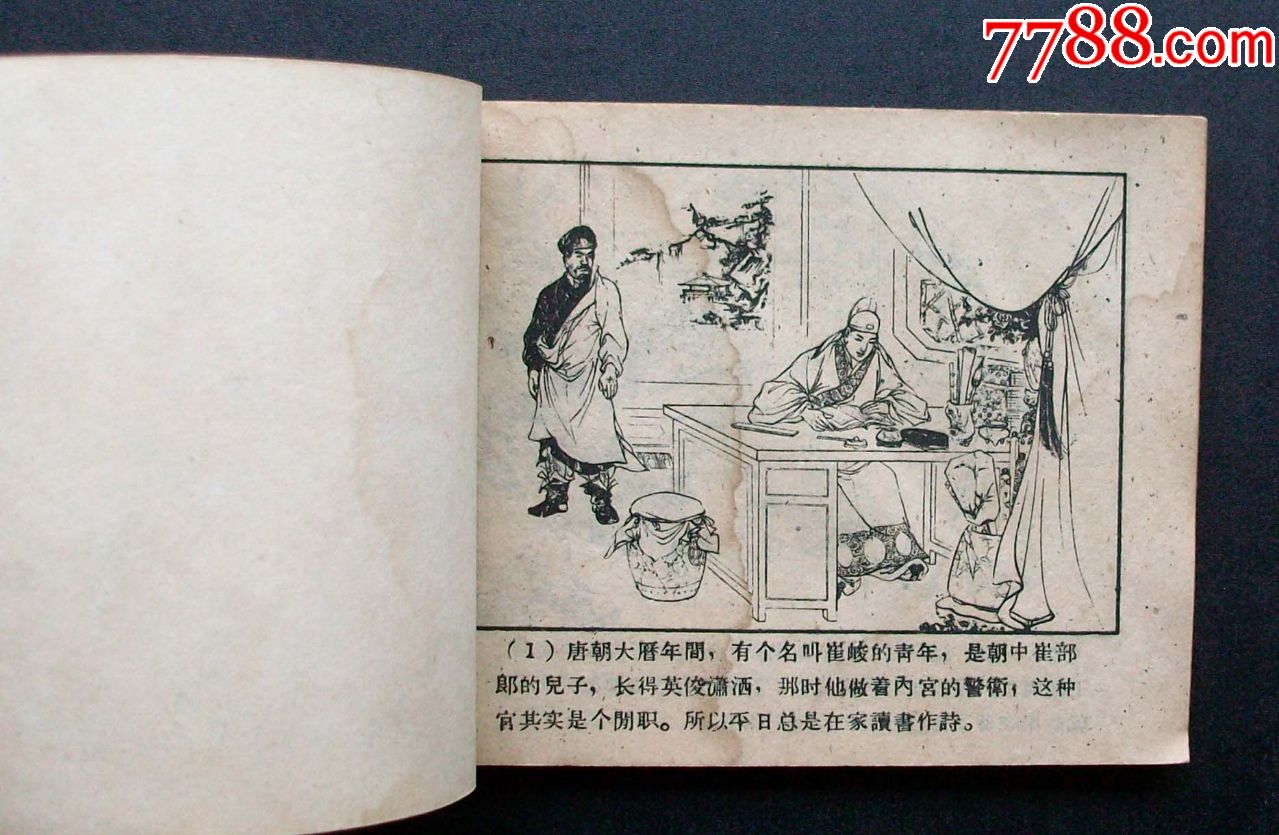 7788.com
(1)唐朝大曆年間，有个名叫崔峻的青年，是朝中崔部
郎的兒子，长得英俊瀟洒，那时他做着內宮的警衛，这种
官其实是个閒职。所以平日总是在家讀書作詩。